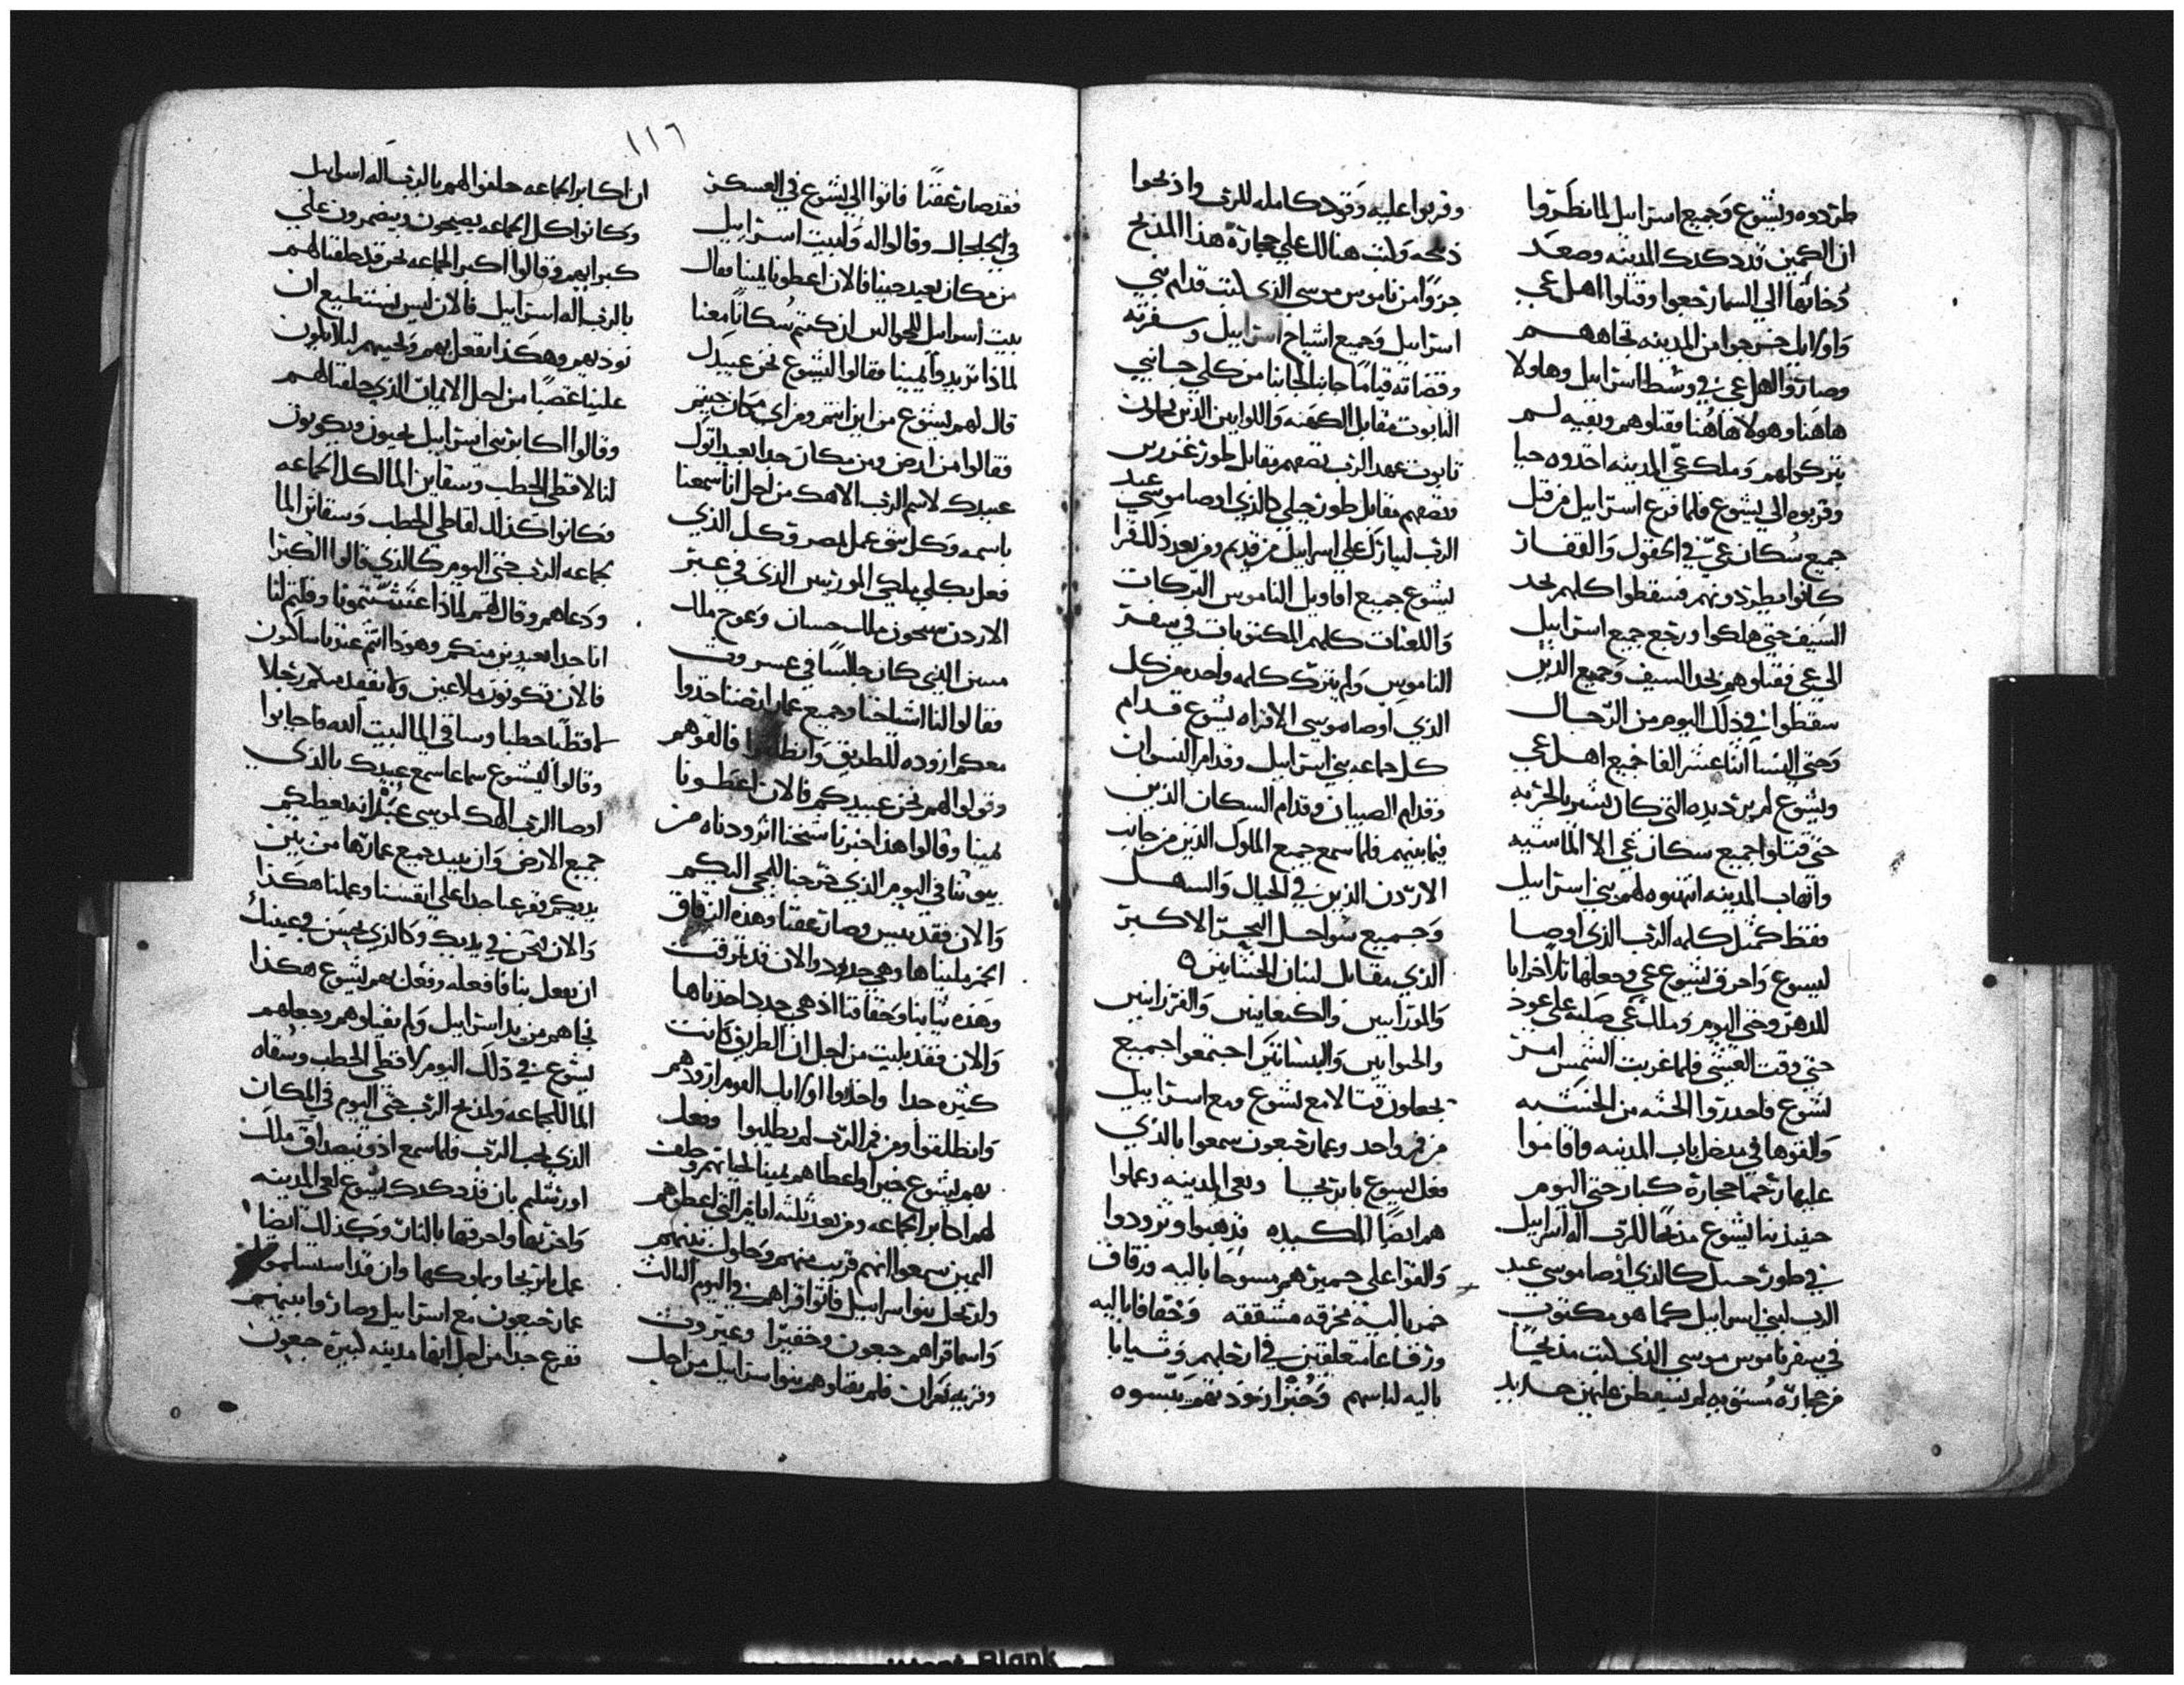 طردوه ويشوع وجميع اسراييل لما نظروا
ان الكمين قد دكدك المدينه وصعد
دخانها الي السما رجعوا وقتلوا اهل عي
واوليك خرجوا من المدينه تجاههم
وصاروا اهل عي في وسط اسراييل وهاولا
هاهنا وهولا هاهنا فقتلوهم وبقيه لم
يتركوا لهم وملك عي المدينه اخدوه حيا
وقربوه الي يشوع فلما فرغ اسراييل من قتل
جميع سكان عي في الحقول والقفار
كانوا يطردونهم فسقطوا كلهم بحد
السيف حتي هلكوا ورجع جميع اسراييل
الي عي فقتلوهم بحد السيف وجميع الذين
سقطوا في ذلك اليوم من الرجال
وحتي النسا اثنا عشر الفا جميع اهل عي
ويشوع لم يرد يده التي كان يشير بالحربه
حتي قتلوا جميع سكان عي الا الماشيه
وانهاب المدينه انتهبوه لهم بني اسراييل
فقط كمثل كلمه الرب الذي اوصا
ليسوع واحرق يشوع عي وجعلها تلا خرابا
للدهر وحتي اليوم وملك عي صلبه علي عود
حتي وقت العشي فلما غربت الشمس امر
يشوع فاحدروا الجثه من الخشبه
والقوها في مدخل باب المدينه واقاموا
عليها رجما حجاره كبار حتي اليوم
حينيذ بنا يشوع مذبحا للرب اله اسراييل
في طور حبل كالذي اوصا موسي عبد
الرب لبني اسراييل كما هو مكتوب
في سفر ناموس موسي الذي كتب مذبحا
من حجاره مستويه لم يسقط عليهن حديد
وقربوا عليه وقود كامله للرب واذبحوا
ذبحه وكتب هنالك علي حجاره هذا المذبح
جزوا من ناموس موسي الذي كتب قدام بني
اسراييل وجميع اشياخ اسراييل وسفرته
وقضاته قياما جانبا لجانبا من كلي جانبي
التابوت مقابل الكهنه واللوايين الذين يحملون
تابوت عهد الرب نصفهم مقابل طور غرزين
ونصفهم مقابل طور جبلي كالذي اوصا موسي عبد
الرب ليبارك علي اسراييل من قديم ومن بعد ذلك قرا
يشوع جميع اقاويل الناموس البركات
واللعنات كلهم المكتوبات في سفر
الناموس ولم يترك كلمه واحده من كل
الذي اوصا موسي الا قراه يشوع قدام
كل جماعه بني اسراييل وقدام النسوان
وقدام الصبيان وقدام السكان الذين
فيما بينهم فلما سمع جميع الملوك الذين من جانب
الاردن الذين في الجبال والسهل
وجميع سواحل البحر الاكبر
الذي مقابل لبنان الحتانيين
والموراييين والكنعانيين والفرزانيين
والحوايين واليبسانيين اجتمعوا جميع
يجعلون قتالا مع يشوع ومع اسراييل
من فم واحد وعمار جبعون سمعوا بالذي
فعل ليسوع باريحا وبعي المدينه وعملوا
هم ايضا المكيده فذهبوا وتزودوا
والقوا علي حميرهم مسوحا باليه وزقاق
خمر باليه مخرقه مشققه وخفافا باليه
ورقاعا متعلقين في ارجلهم وثيابا
باليه لباسهم وخبزا زودتهم يبسوه
١١٦
فقد صار عفنا فاتوا الي يشوع في العسكر
في الجلجال وقالوا له ولبيت اسراييل
من مكان بعيد جينا فالان اعطونا يمينا فقال
بيت اسراييل للحواليين ان كنتم سكانا معنا
لماذا تريدوا يمينا فقالوا ليشوع نحن عبيدك
قال لهم يشوع من اين انتم ومن اي مكان جيتم
فقالوا من ارض ومن مكان جدا بعيد اتوك
عبيدك لاسم الرب الاهك من اجل انا سمعنا
باسمه وكل شي عمل بمصر وكل الذي
فعل بكلي ملكي المورنين الذي في عبر
الاردن سيحون ملك حسبان وعوج ملك
بيسن الذي كان جالسا في عسروت
فقالوا لنا اشياخنا وجميع عمار ارضنا خدوا
معكم ازوده للطريق وانطلقوا فالقوهم
وقولوا لهم نحن عبيدكم فالان اعطونا
يمينا وقالوا هذا خبزنا سخنا اتزودناه من
بيوتنا في اليوم الذي خرجنا للمجي اليكم
والان فقد يبس وصار عفنا وهذه الزقاق
الخمر مليناها وهي جدد والان قد تمزقت
وهذه ثيابنا وخفافنا اذ هي جدد اخذناها
والان فقد بليت من اجل ان الطريق كانت
كثيره جدا واخذوا اوليك القوم ازودهم
وانطلقوا ومن فم الرب لم يطلبوا وفعل
بهم يشوع خيرا واعطاهم يمينا لحياتهم وحلف
لهم اكابر الجماعه ومن بعد ثلثه ايام التي اعطوهم
اليمين سمعوا انهم قريب منهم وحلول بينهم
وارتحل بنوا اسراييل فاتوا قراهم في اليوم الثالث
واسما قراهم جبعون وخفيرا وعيروت
وقريه نعران فلم يقتلوهم بنوا اسراييل من اجل
ان اكابر الجماعه حلفوا لهم بالرب اله اسراييل
وكانوا كل الجماعه يصيحون ويتضمرون علي
كبرايهم وقالوا اكبر الجماعه نحن قد حلفنا لهم
بالرب اله اسراييل فالان ليس نستطيع ان
نوذيهم وهكذا نفعل بهم ونحييهم ليلا يكون
علينا غضبا من اجل الايمان الذي حلفنا لهم
وقالوا اكابر بني اسراييل يحيون ويكونون
لنا لاقطي الحطب وسقاين الما لكل الجماعه
فكانوا كذلك لقاطي الحطب وسقاين الما
لجماعه الرب حتي اليوم كالذي قالوا الكبرا
ودعاهم وقال لهم لماذا غششتمونا وقلتم لنا
انا جدا بعيدين منكم وهودا انتم عندنا ساكنون
فالان تكونون ملاعين ولا نفقد منكم رجلا
لاقطا حطبا وساقي الما لبيت الله فاجابوا
وقالوا ليشوع سماعا سمع عبيدك بالذي
اوصا الرب الهك لموسي عبده انه يعطيكم
جميع الارض وان يبيد جميع عمارها من بين
يديكم ففزعنا جدا علي انفسنا وعملنا هكذا
والان نحن في يديك وكالذي يحسن في عينك
ان تفعل بنا فافعله وفعل بهم يشوع هكذا
نجاهم من يد اسراييل ولم يقتلوهم وجعلهم
يشوع في ذلك اليوم لاقطي الحطب وسقاه
الما للجماعه ولمذبح الرب حتي اليوم في المكان
الذي يحب الرب فلما سمع اذونيصداق ملك
اورشليم بان قد دكدك يشوع لعي المدينه
واخربها واحرقها بالنار وكذلك ايضا
عمل باريحا وبملوكها وان قد استسلموا
عمار جبعون مع اسراييل وصاروا بينهم
ففزع جدا من اجل انها مدينه كبيره جبعون